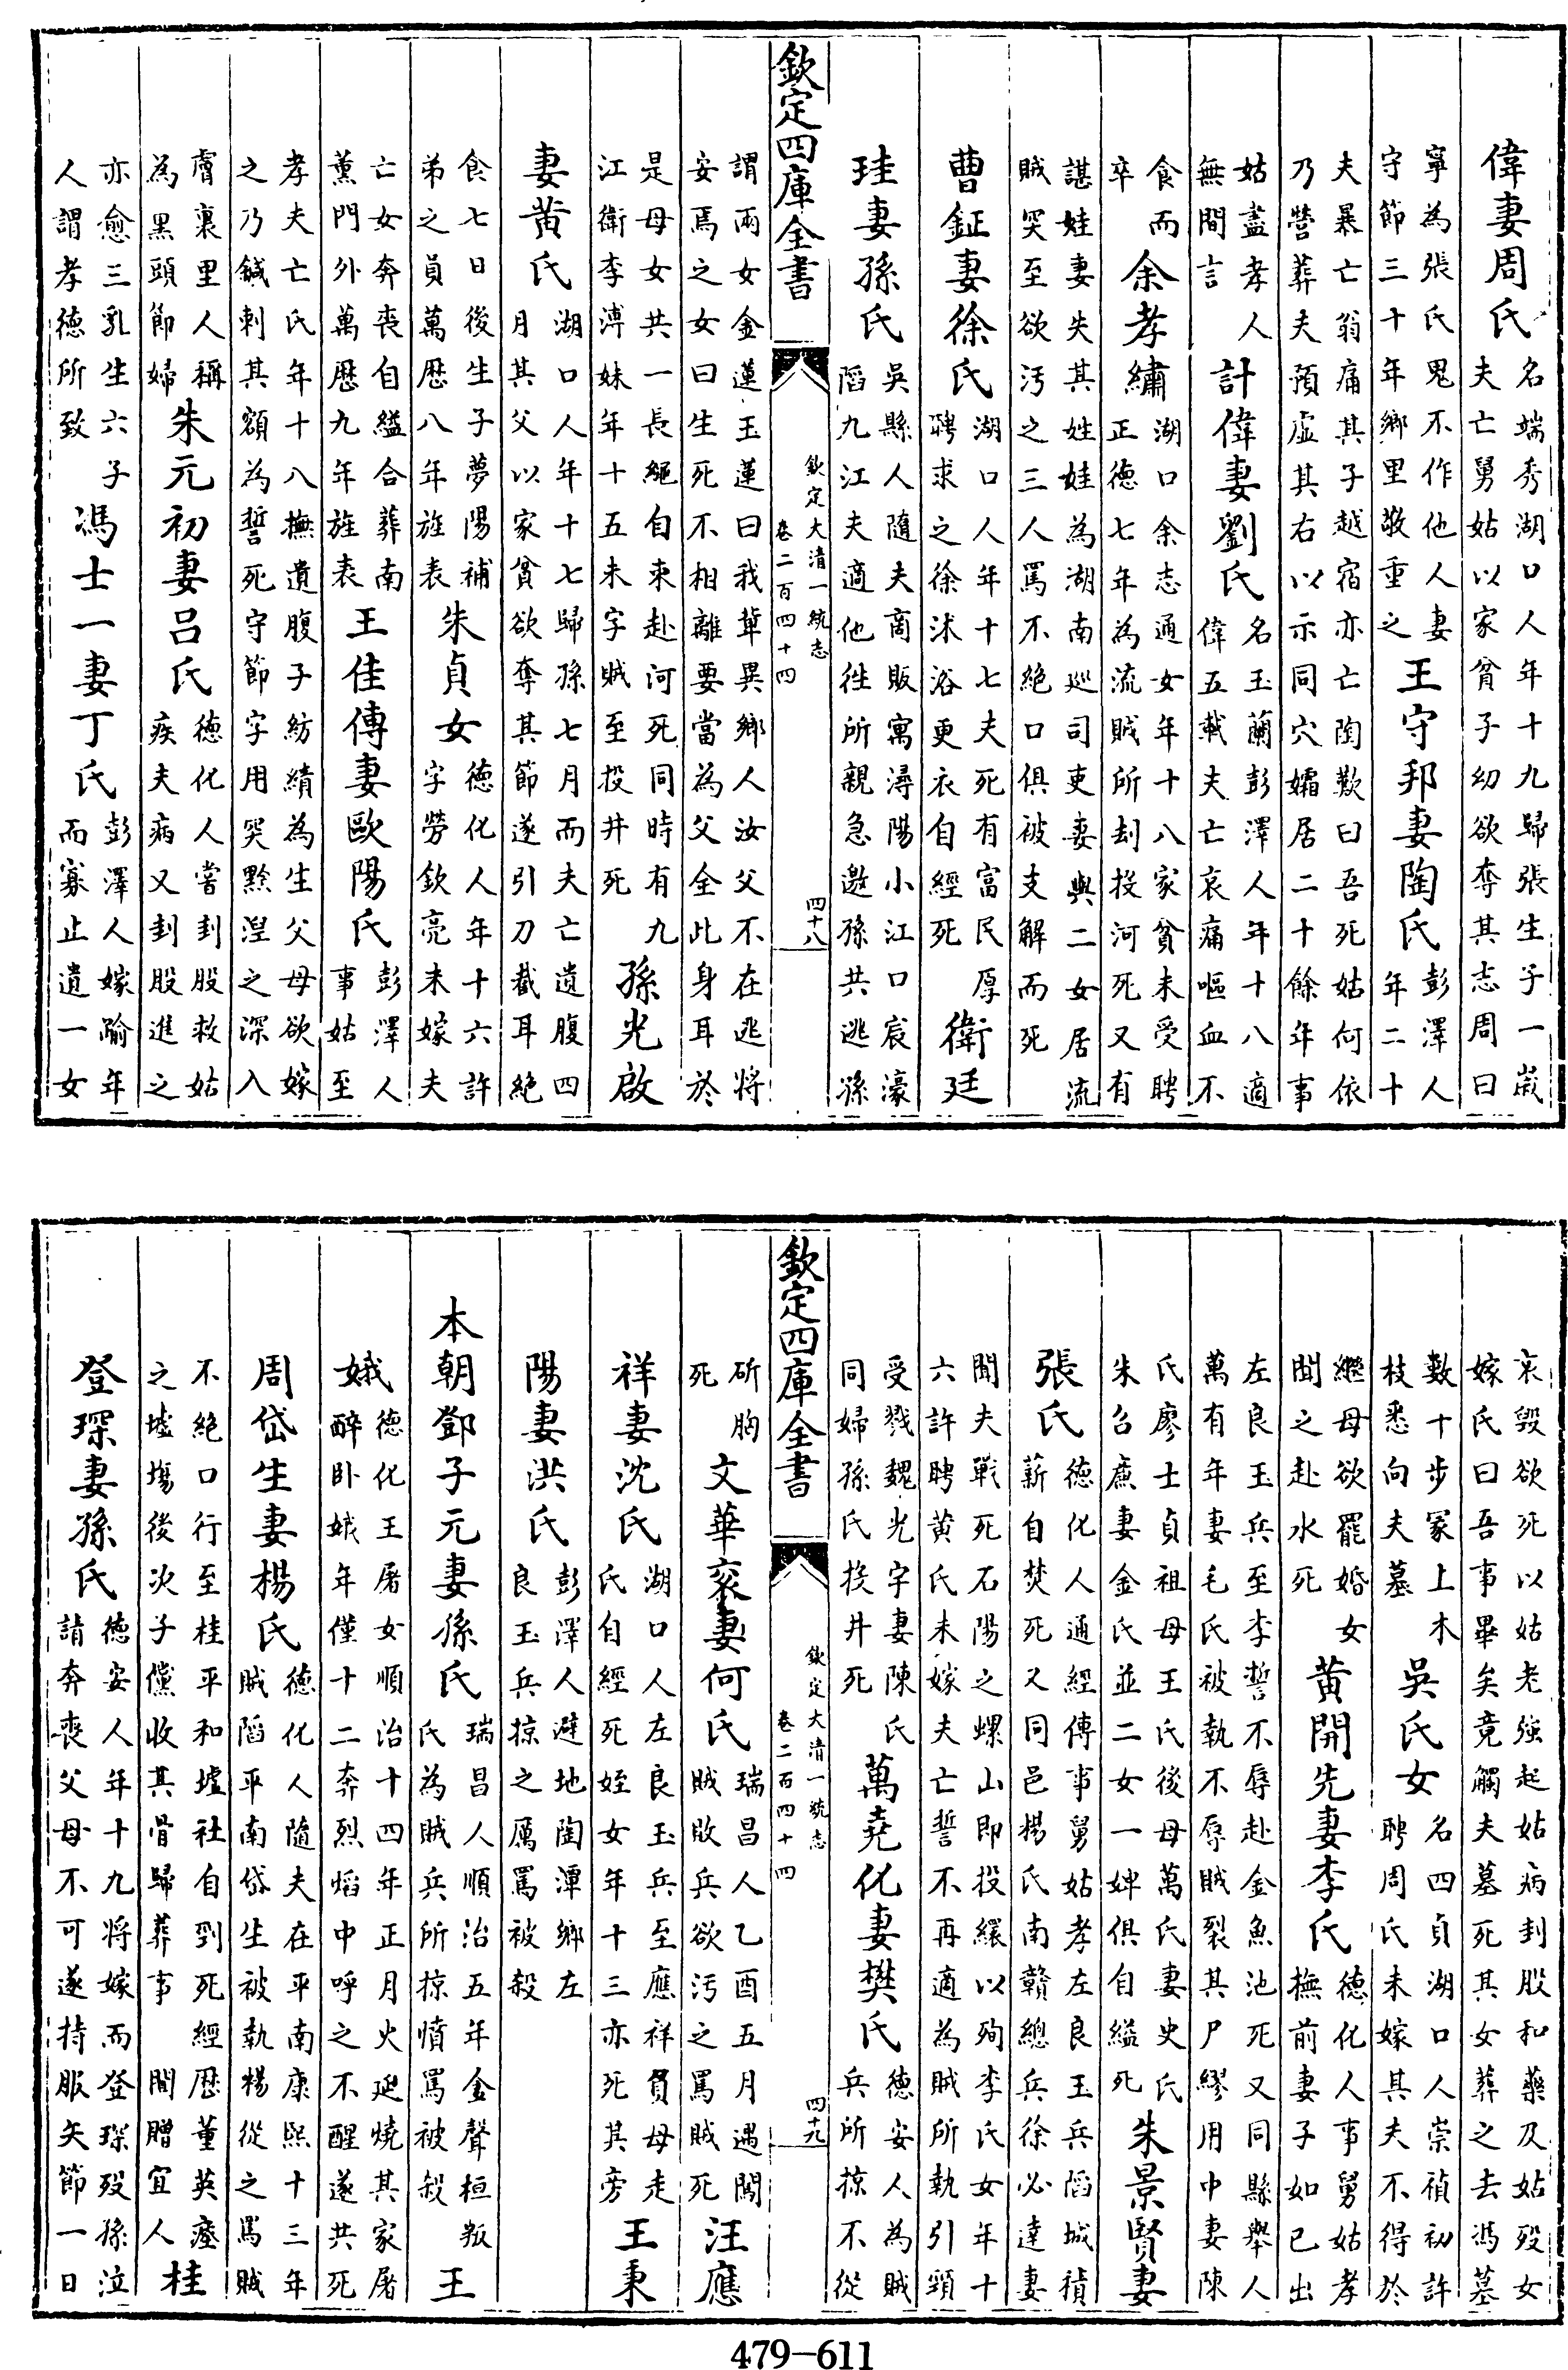 偉妻周氏名端秀湖口人年十九歸張生子一歲夫亡舅姑以家貧子幼欲奪其志周曰
寧為張氏鬼不作他人妻守節三十年鄉里敬重之王守邦妻陶氏彭澤人年二十
夫暴亡翁痛其子越宿亦亡陶歎曰吾死姑何依乃營葬夫預虛其右以示同穴孀居二十餘年事
姑盡孝人無間言計偉妻劉氏名玉蘭彭澤人年十八適偉五載夫亡哀痛嘔血不
食而卒余孝繡湖口余志通女年十八家貧未受聘正德七年為流賊所刦投河死又有
諶娃妻失其姓娃為湖南巡司吏妻與二女居流賊突至欲汚之三人罵不絕口俱被支解而死
曹鉦妻徐氏湖口人年十七夫死有富民厚聘求之徐沐浴更衣自經死衛廷
珪妻孫氏吳縣人隨夫商販寓潯陽小江口宸濠䧟九江夫適他徃所親急邀孫共逃孫
欽定四庫全書 欽定大清一統志 卷二百四十四 四十八
謂兩女金蓮玉蓮曰我軰異鄉人汝父不在逃將安焉之女曰生死不相離要當為父全此身耳於
是母女共一長繩自束赴河死同時有九江衛李溥妹年十五未字賊至投井死孫光啟
妻黄氏湖口人年十七歸孫七月而夫亡遺腹四月其父以家貧欲奪其節遂引刀截耳絕
食七日後生子夢陽補弟之員萬歴八年旌表朱貞女德化人年十六許字勞欽亮未嫁夫
亡女奔喪自縊合葬南薫門外萬歴九年旌表王佳傳妻歐陽氏彭澤人事姑至
孝夫亡氏年十八撫遺腹子紡績為生父母欲嫁之乃鍼刺其額為誓死守節字用突黔湼之深入
膚裏里人稱為黑頭節婦朱元初妻吕氏德化人嘗刲股救姑疾夫病又刲股進之
亦愈三乳生六子人謂孝德所致馮士一妻丁氏彭澤人嫁踰年而寡止遺一女
哀毀欲死以姑老強起姑病刲股和藥及姑歿女嫁氏曰吾事畢矣竟觸夫墓死其女葬之去馮墓
數十步冢上木枝悉向夫墓吳氏女名四貞湖口人崇禎初許聘周氏未嫁其夫不得於
繼母欲罷婚女聞之赴水死黄開先妻李氏德化人事舅姑孝撫前妻子如已出
左良玉兵至李誓不辱赴金魚池死又同縣舉人萬有年妻毛氏被執不辱賊裂其尸繆用中妻陳
氏廖士貞祖母王氏後母萬氏妻史氏朱召庶妻金氏並二女一婢俱自縊死朱景賢妻
張氏德化人通經傳事舅姑孝左良玉兵䧟城積薪自焚死又同邑楊氏南贛總兵徐必達妻
聞夫戰死石陽之螺山即投繯以殉李氏女年十六許聘黄氏未嫁夫亡誓不再適為賊所執引頸
受戮魏光字妻陳氏同婦孫氏投井死萬堯化妻樊氏德安人為賊兵所掠不從
欽定四庫全書 欽定大清一統志 卷二百四十四 四十九
斫胸死文華衮妻何氏瑞昌人乙酉五月遇闖賊敗兵欲汚之罵賊死汪應
祥妻沈氏湖口人左良玉兵至應祥負母走氏自經死姪女年十三亦死其旁王秉
陽妻洪氏彭澤人避地陶潭鄉左良玉兵掠之厲罵被殺
本朝鄧子元妻孫氏瑞昌人順治五年金聲桓叛氏為賊兵所掠憤罵被殺王
娥德化王屠女順治十四年正月火延燒其家屠醉卧娥年僅十二奔烈焰中呼之不醒遂共死
周岱生妻楊氏德化人隨夫在平南康熙十三年賊䧟平南岱生被執楊從之罵賊
不絕口行至桂平和墟社自刭死經歴董英瘞之墟塲後次子儻收其骨歸葬事聞贈宜人桂
登琛妻孫氏德安人年十九將嫁而登琛歿孫泣請奔喪父母不可遂持服矢節一日
479-611